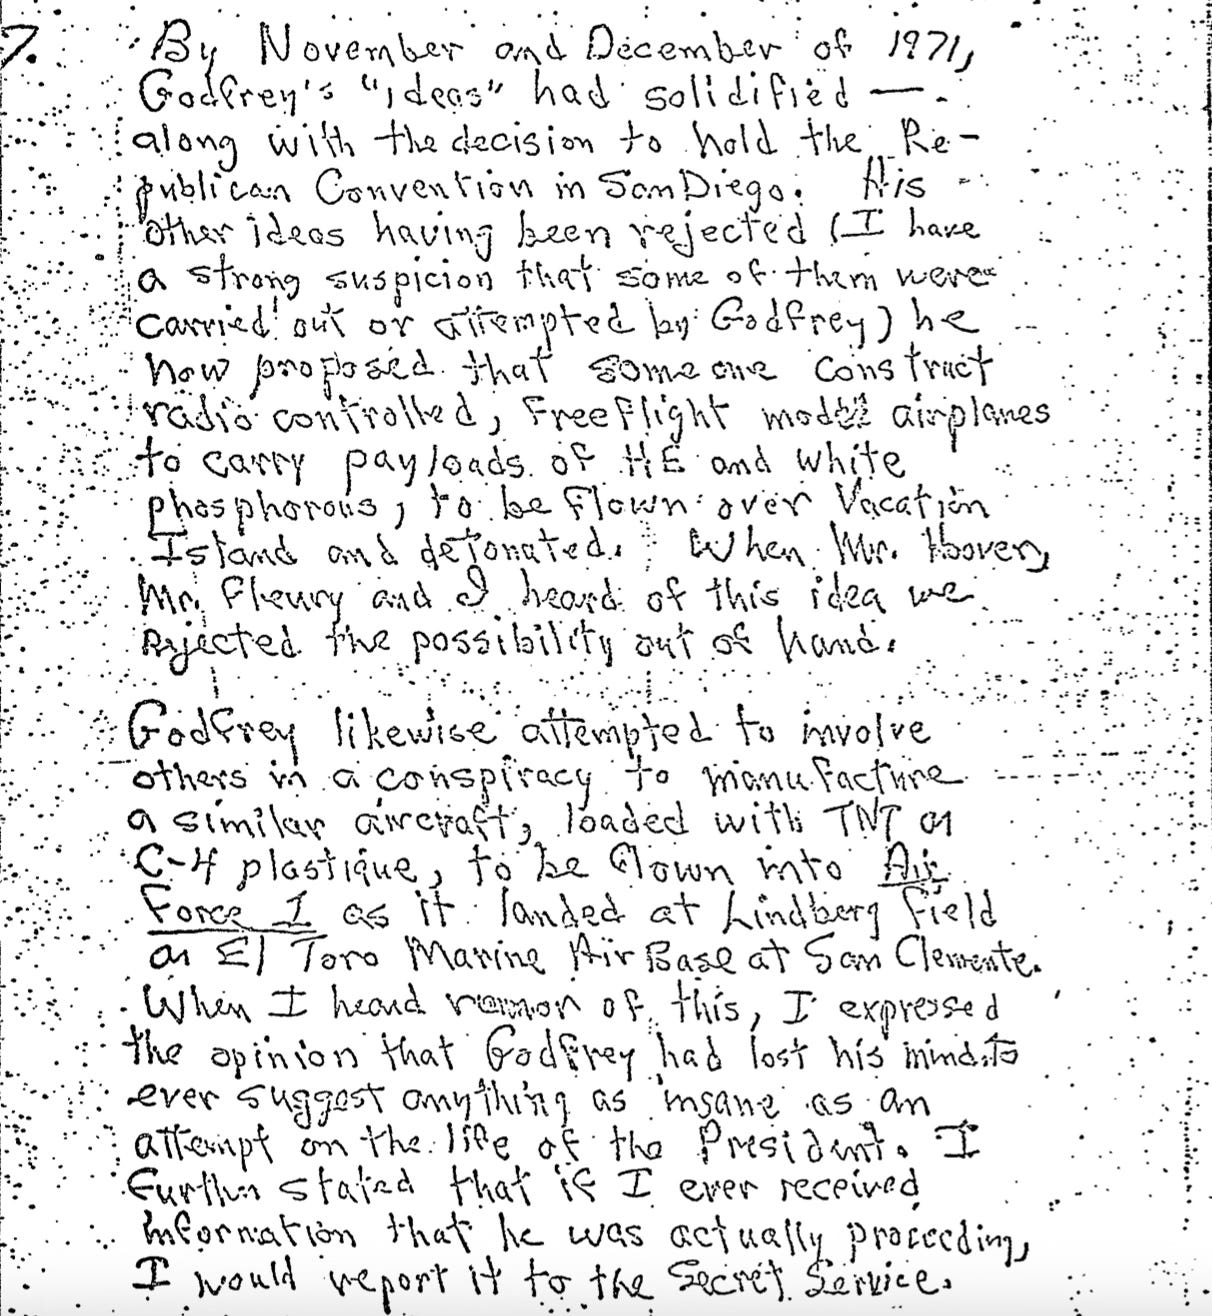 7. By November and December of 1971,
Godfrey's "ideas" had solidified —
along with the decision to hold the Re-
publican Convention in San Diego. His
other ideas having been rejected (I have
a strong suspicion that some of them were
carried out or attempted by Godfrey) he
now proposed that someone construct
radio controlled, free flight model airplanes
to carry payloads of HE and white
phosphorous, to be flown over Vacation
Island and detonated. When Mr. Hoover,
Mr. Fleury and I heard of this idea we
rejected the possibility out of hand.
Godfrey likewise attempted to involve
others in a conspiracy to manufacture
a similar aircraft, loaded with TNT or
C-4 plastique, to be flown into Air
Force 1 as it landed at Lindberg Field
or El Toro Marine Air Base at San Clemente.
When I heard rumor of this, I expressed
the opinion that Godfrey had lost his mind to
ever suggest anything as insane as an
attempt on the life of the President. I
further stated that if I ever received
information that he was actually proceeding,
I would report it to the Secret Service.